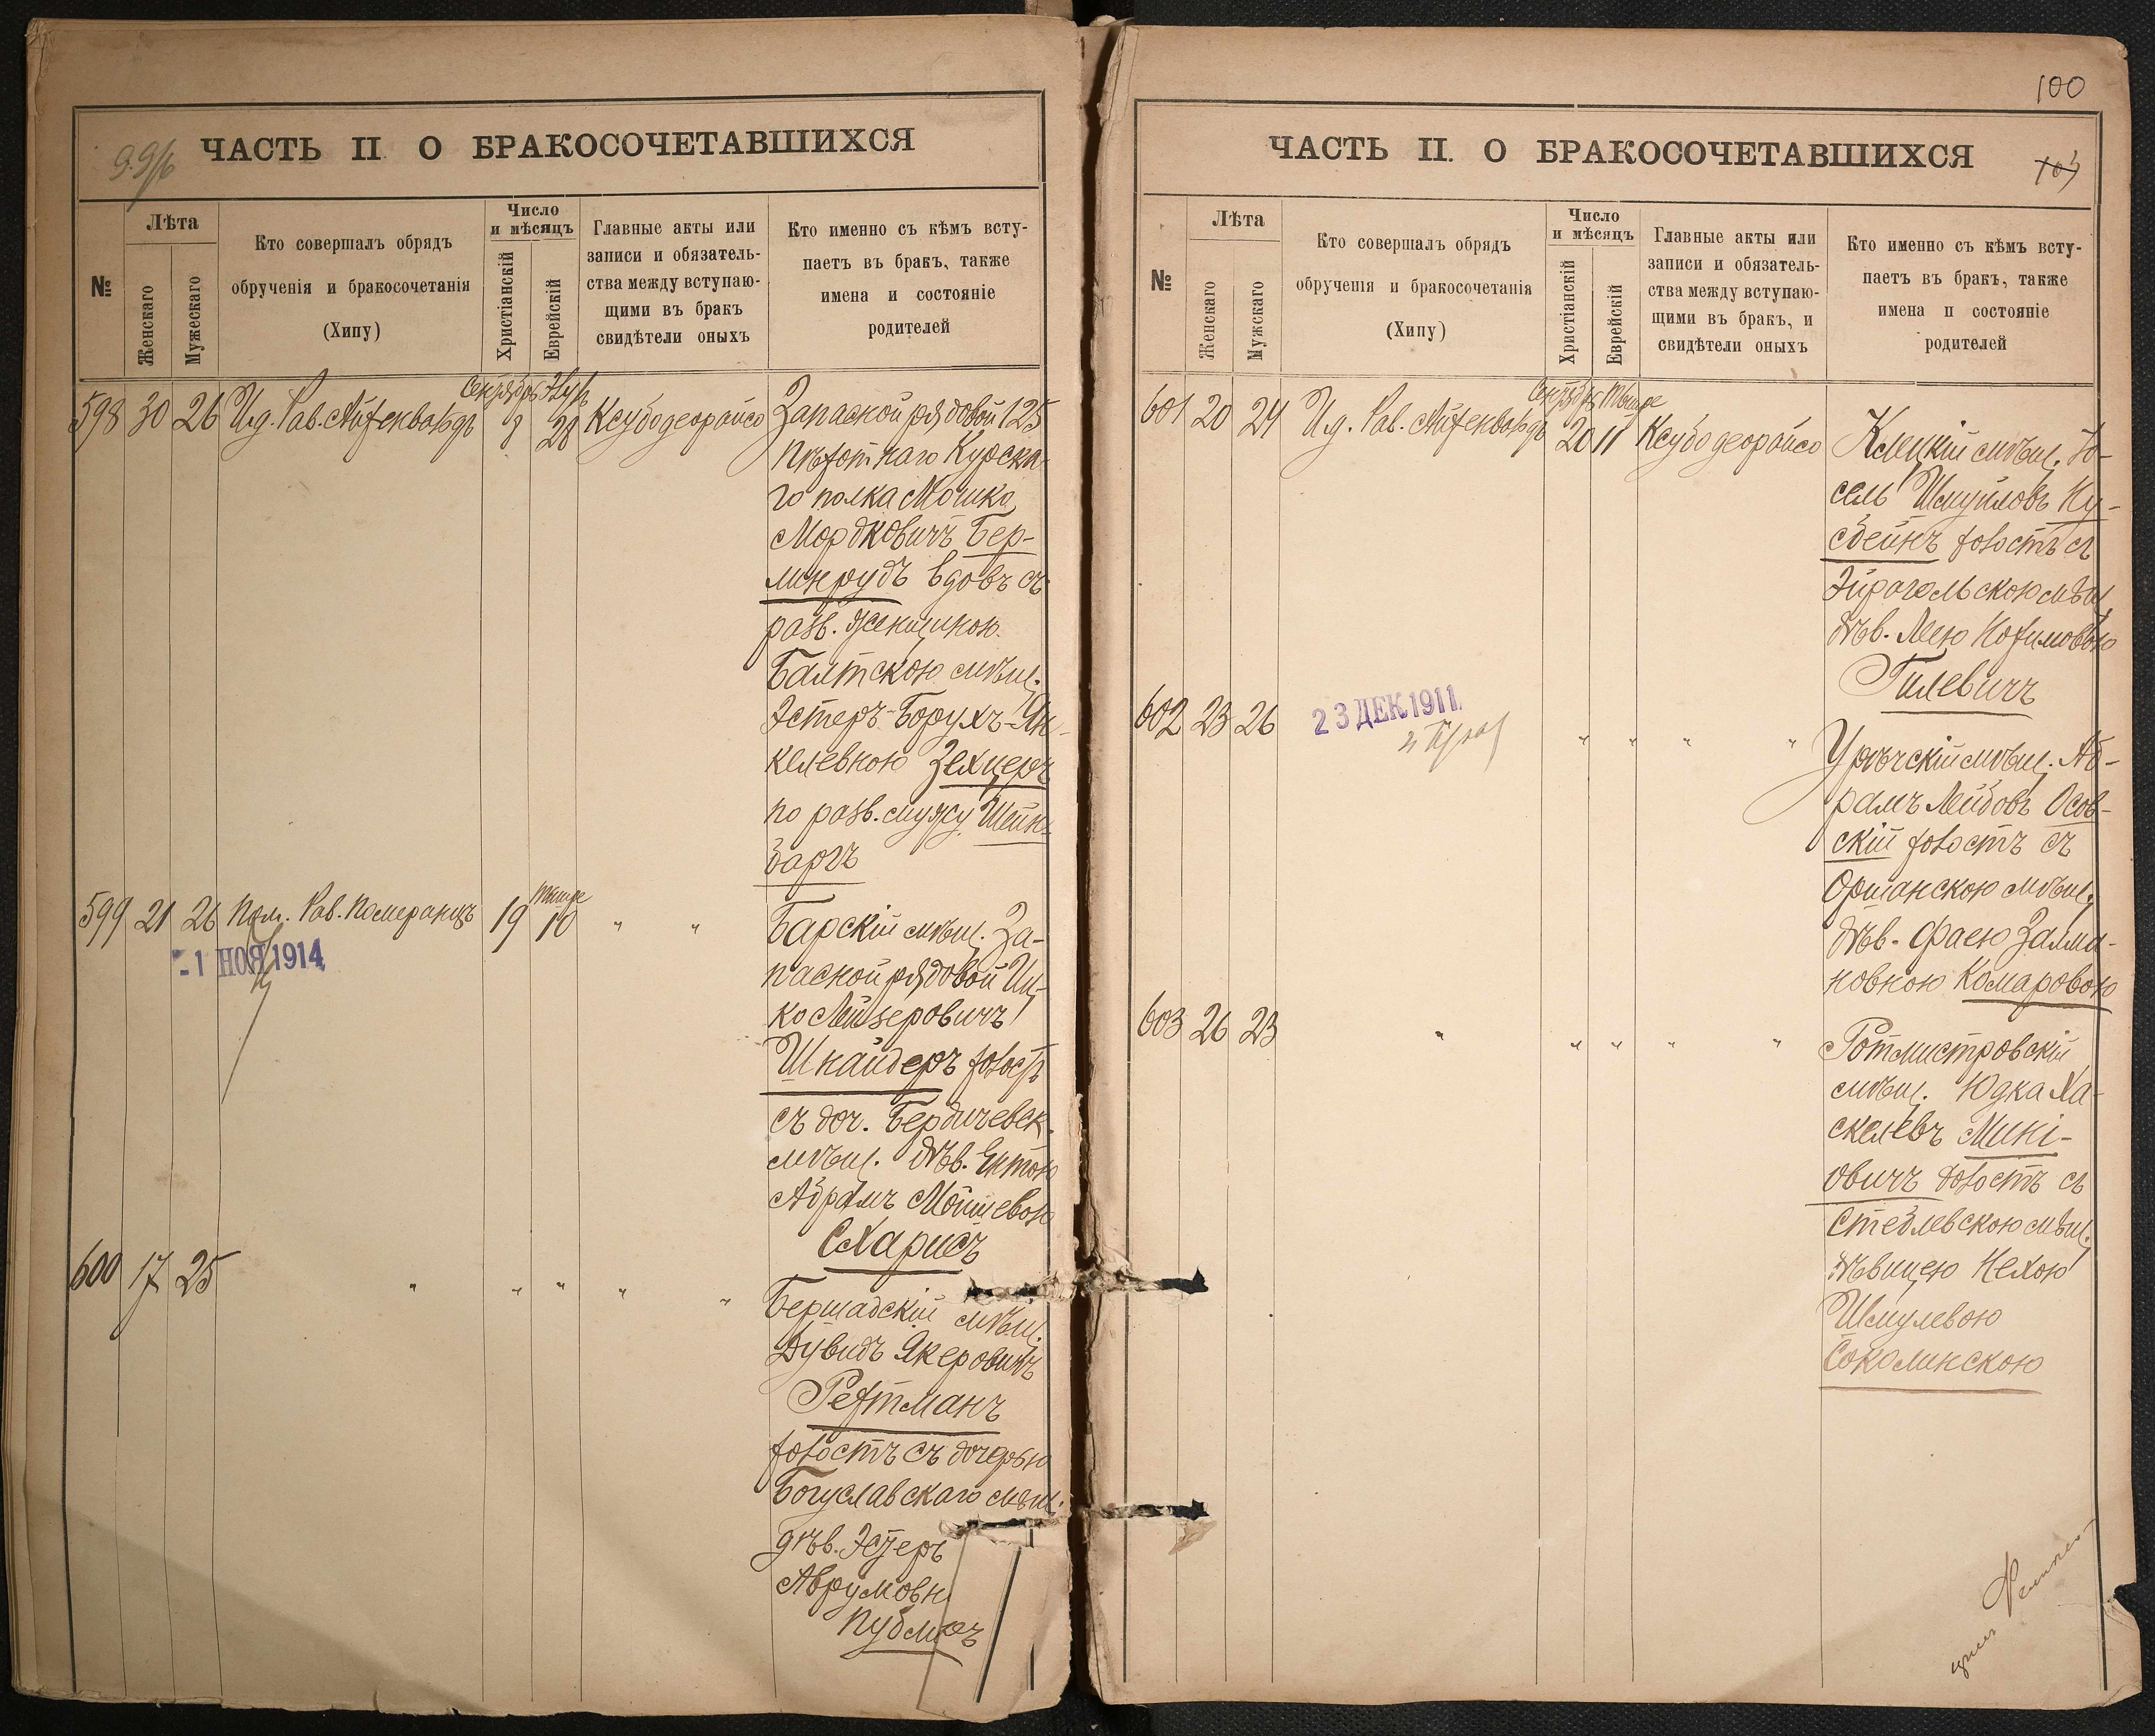 99/б
ЧАСТЬ II О БРАКОСОЧЕТАВШИХСЯ
№
Лѣта
Женскаго
Мужескаго
Кто совершалъ обрядъ
обрученія и бракосочетанія
(Хипу)
Число
и мѣсяцъ
Христіанскій
Еврейскій
Главные акты или
записи и обязатель-
ства между вступаю-
щими въ бракъ
свидѣтели оныхъ
Кто именно съ кѣмъ всту-
паетъ въ бракъ, также
имена и состояніе
родителей
Сентябрь
598 30 26 И.д. Рав. Айзенвардъ 28 Ксубо деорайсо
Запасной рядовой 125
пѣхотнаго Курска-
го полка Мошко
Мордковичъ Бер-
линрудъ вдовъ съ
разв. женщиною
Балтскою мѣщ.
Эстеръ-Борухъ-Ян-
келевною Зехцеръ
по разв. мужу Шейн-
баргъ
599 21 26 Пом. Рав. Померанцъ 19 Тишре 10 " "
1 НОЯ 1914
Барскій мѣщ. За-
пасной рядовой Иц-
ко Лейзеровичъ
Шнайдеръ холост
съ доч. Бердичевск.
мѣщ. дѣв. Ентою
Абрамъ Мошевою
Схарисъ
600 17 25 " " " " "
Бершадскій мѣщ.
Дувидъ Якеровичъ
Рехтманъ
холостъ съ дочерью
Богуславскаго мѣщ.
дѣв. Эстеръ
Аврумовн
100
ЧАСТЬ II. О БРАКОСОЧЕТАВШИХСЯ
№
Лѣта
Женскаго
Мужскаго
Кто совершалъ обрядъ
обрученія и бракосочетанія
(Хипу)
Число
и мѣсяцъ
Христіанскій
Еврейскій
Главные акты или
записи и обязатель-
ства между вступаю-
щими въ бракъ, и
свидѣтели оныхъ
Кто именно съ кѣмъ всту-
паетъ въ бракъ, также
имена и состояніе
родителей
Сентября Тишре
601 20 24 И.д. Рав. Айзенвардъ 20 11 Ксубо деорайсо
Клецкій мѣщ. Іо-
сель Шмуйловъ Ну-
сбеймъ холостъ съ
Эйрагольскою мѣщ.
дѣв. Леею Нохимовою
Гилевичъ
602 23 26 " " " "
23 ДЕК 1911
Урѣчскій мѣщ. Аб-
рамъ Лейбовъ Осов-
скій холостъ съ
Оршанскою мѣщ.
дѣв. Фаею Залма-
новною Комаровою
603 26 23 " " " " "
Ротмистровскій
мѣщ. Юдка Ха-
скелевъ Мині-
овичъ холостъ съ
Стеблевскою мѣщ.
дѣвицею Нехою
Шмулевою
Соколинскою